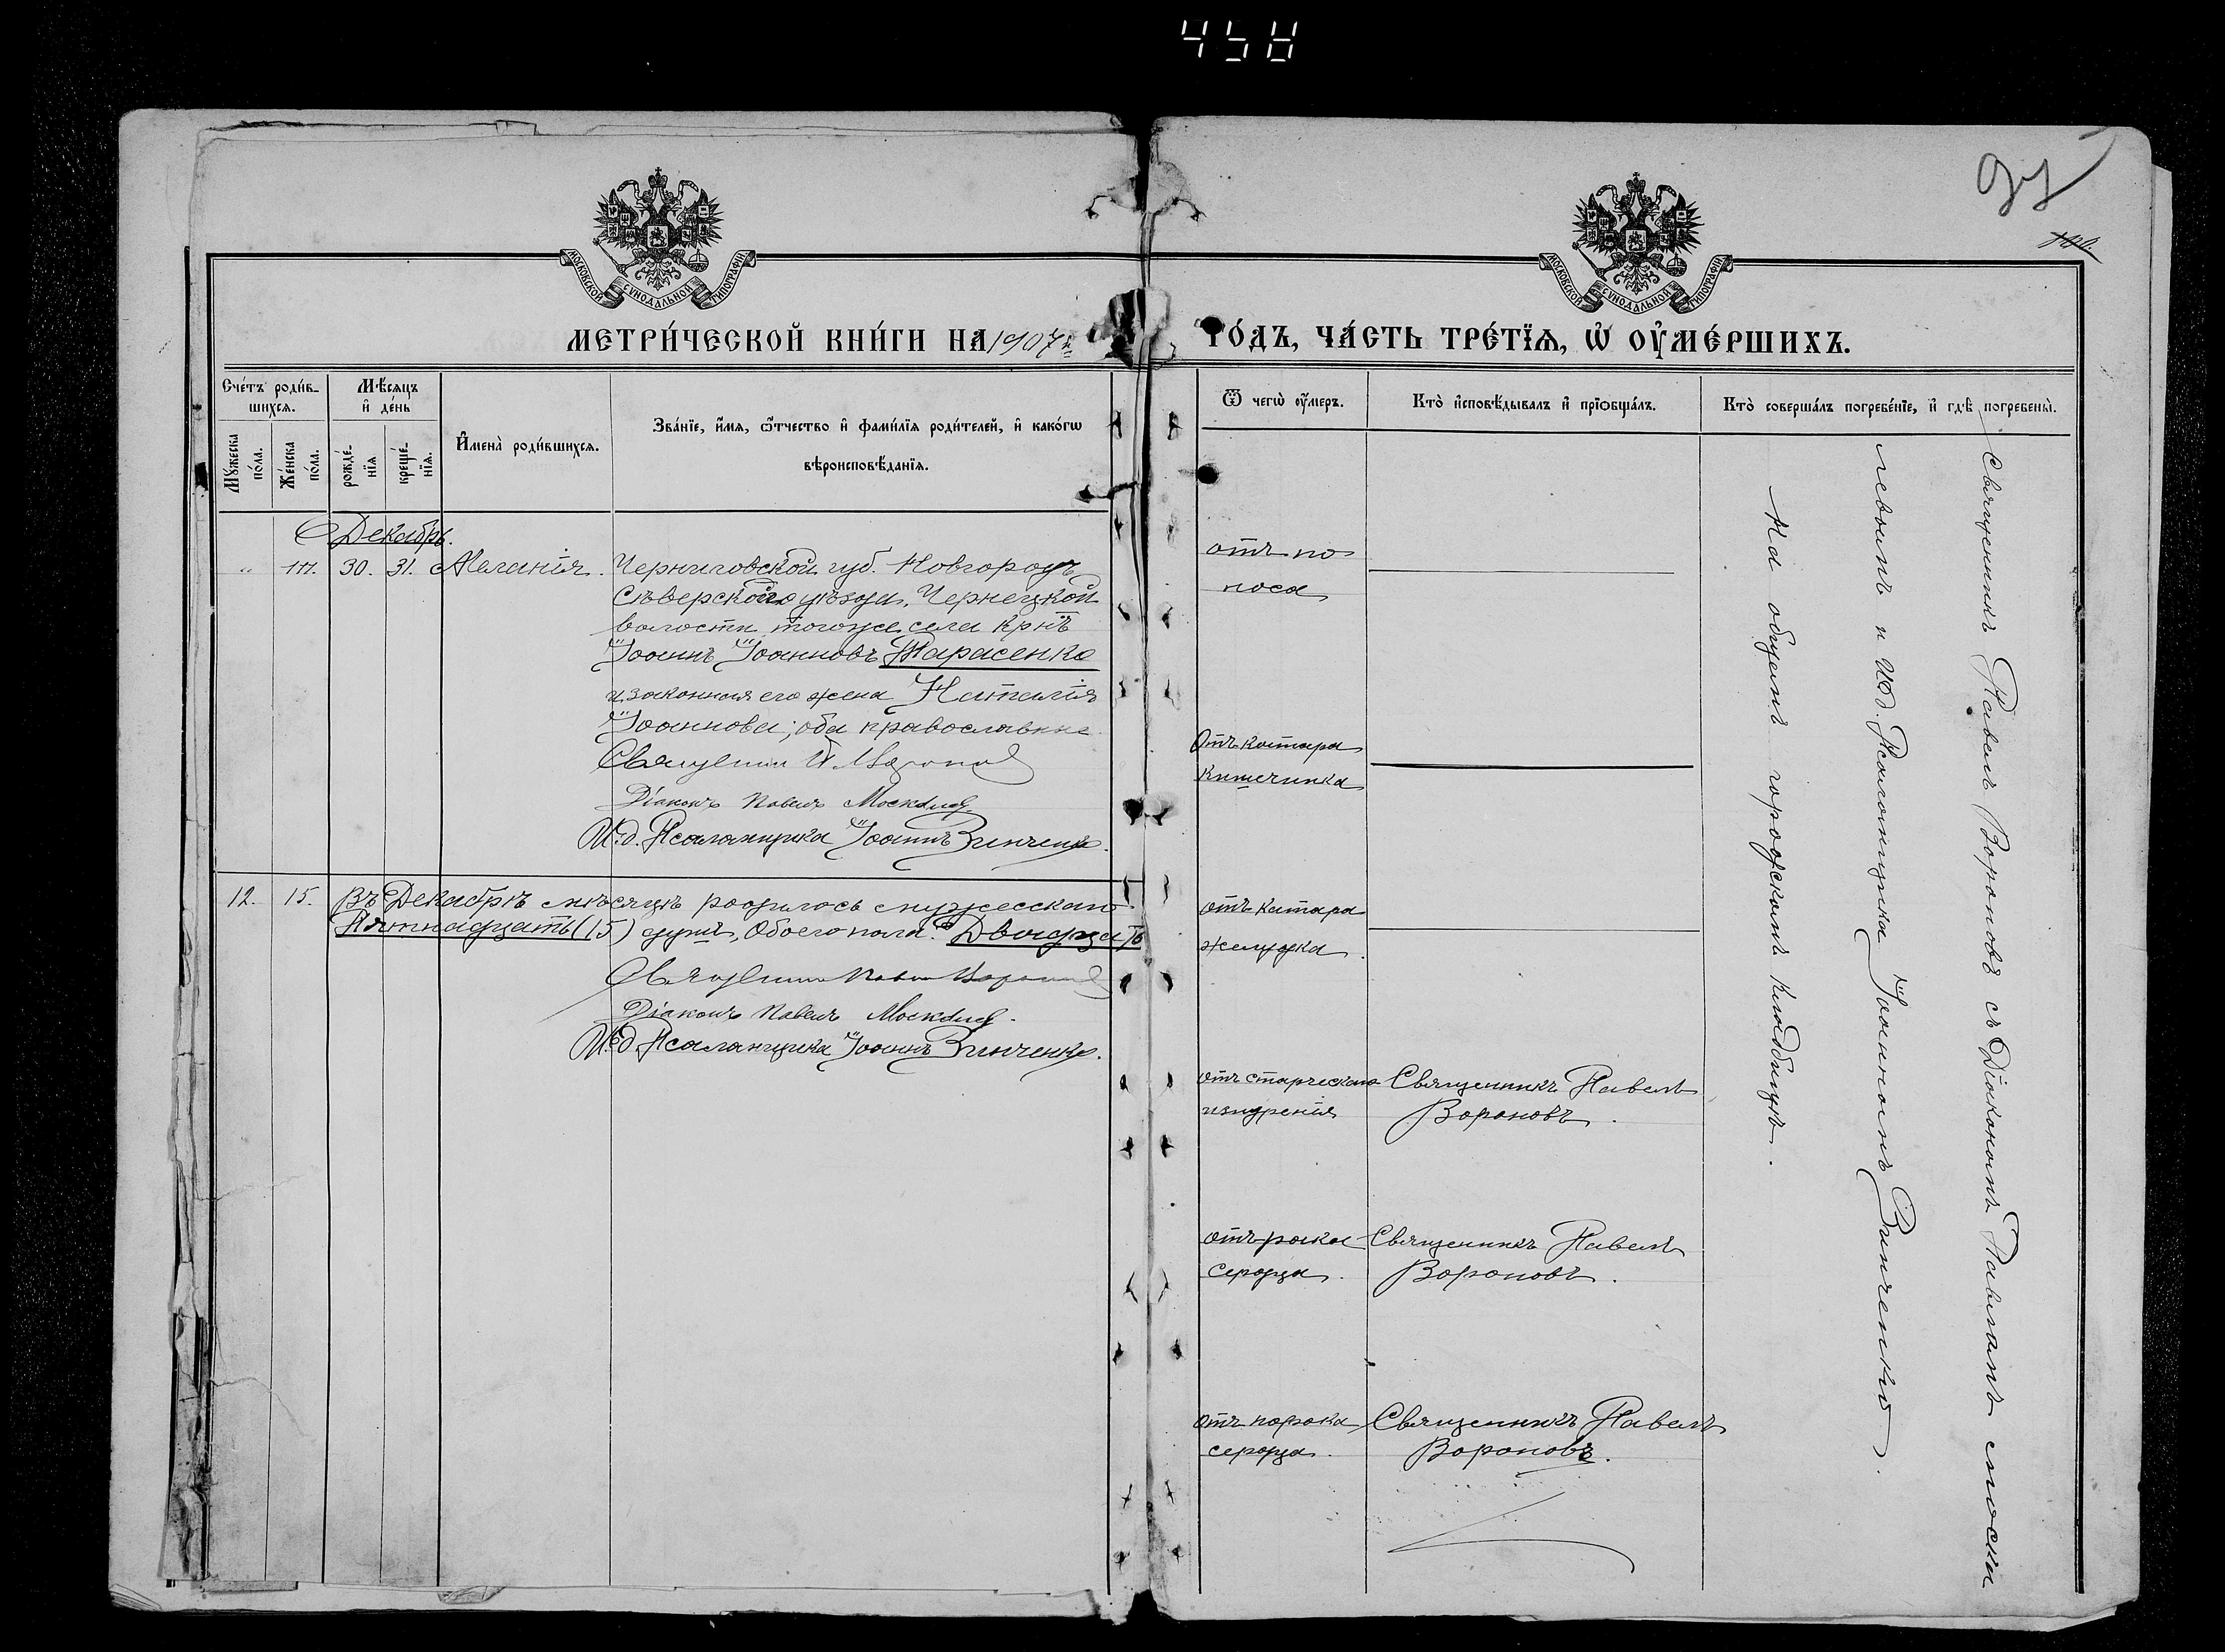 458
97
МОСКОВСКОЙ СѴНОДАЛЬНОЙ ТИПОГРАФІИ
МОСКОВСКОЙ СѴНОДАЛЬНОЙ ТИПОГРАФІИ
МЕТРИ́ЧЕСКОЙ КНИ́ГИ НА 1907й
ГО́ДЪ, ЧА́СТЬ ТРЕ́ТЇѦ, Ѡ҆ ОУ҆МЕ́РШИХЪ.
Сче́тъ роди́в-
шихсѧ.
Мꙋ́жеска по́ла.
Же́нска по́ла.
Мѣ́сѧцъ
и҆ де́нь
рожде́-
нїѧ
креще́-
нїѧ.
И҆мена̀ роди́вшихсѧ.
Зва́нїе, и҆́мѧ, ѻ҆́тчество и҆ фами́лїѧ роди́телей, и҆ како́гѡ
вѣроисповѣ́данїѧ.
Декабрь.
" 111. 30. 31. Меланія. Черниговской губ. Новгородъ
Сѣверскаго уѣзда, Чернецкой
волости тогоже села крнъ
Іоаннъ Іоанновъ Тарасенко
и законная его жена Наталія
Іоаннова; оба православные
Священникъ П. Вороновъ
Діаконъ Павелъ
И. д. Псаломщика Іоаннъ Зинченко.
12. 15. Въ Декабрѣ мѣсяцѣ родилось мужескаго
Пятнадцать (15) душъ, Обоего пола. Двадца
Священникъ Павелъ Вороновъ
Діаконъ Павелъ
И. д. Псаломщика Іоаннъ Зинченко.
Ѿ чегѡ̀ оу҆́меръ.
Кто̀ и҆сповѣ́дывалъ и҆ прїѡбща́лъ.
Кто̀ соверша́лъ погребе́нїе, и҆ гдѣ̀ погребены̀.
отъ по
носа
Отъ катара
кишечника
отъ катара
желудка.
отъ старческаго Священникъ Павелъ
изнуренія Вороновъ.
отъ рака Священникъ Павелъ
сердца. Вороновъ.
отъ порока Священникъ Павелъ
сердца. Вороновъ.
Священникъ Павелъ Вороновъ съ Діакономъ Павломъ
и И.д. Псаломщика Іоанномъ Зинченко.
На общемъ городскомъ кладбищѣ.